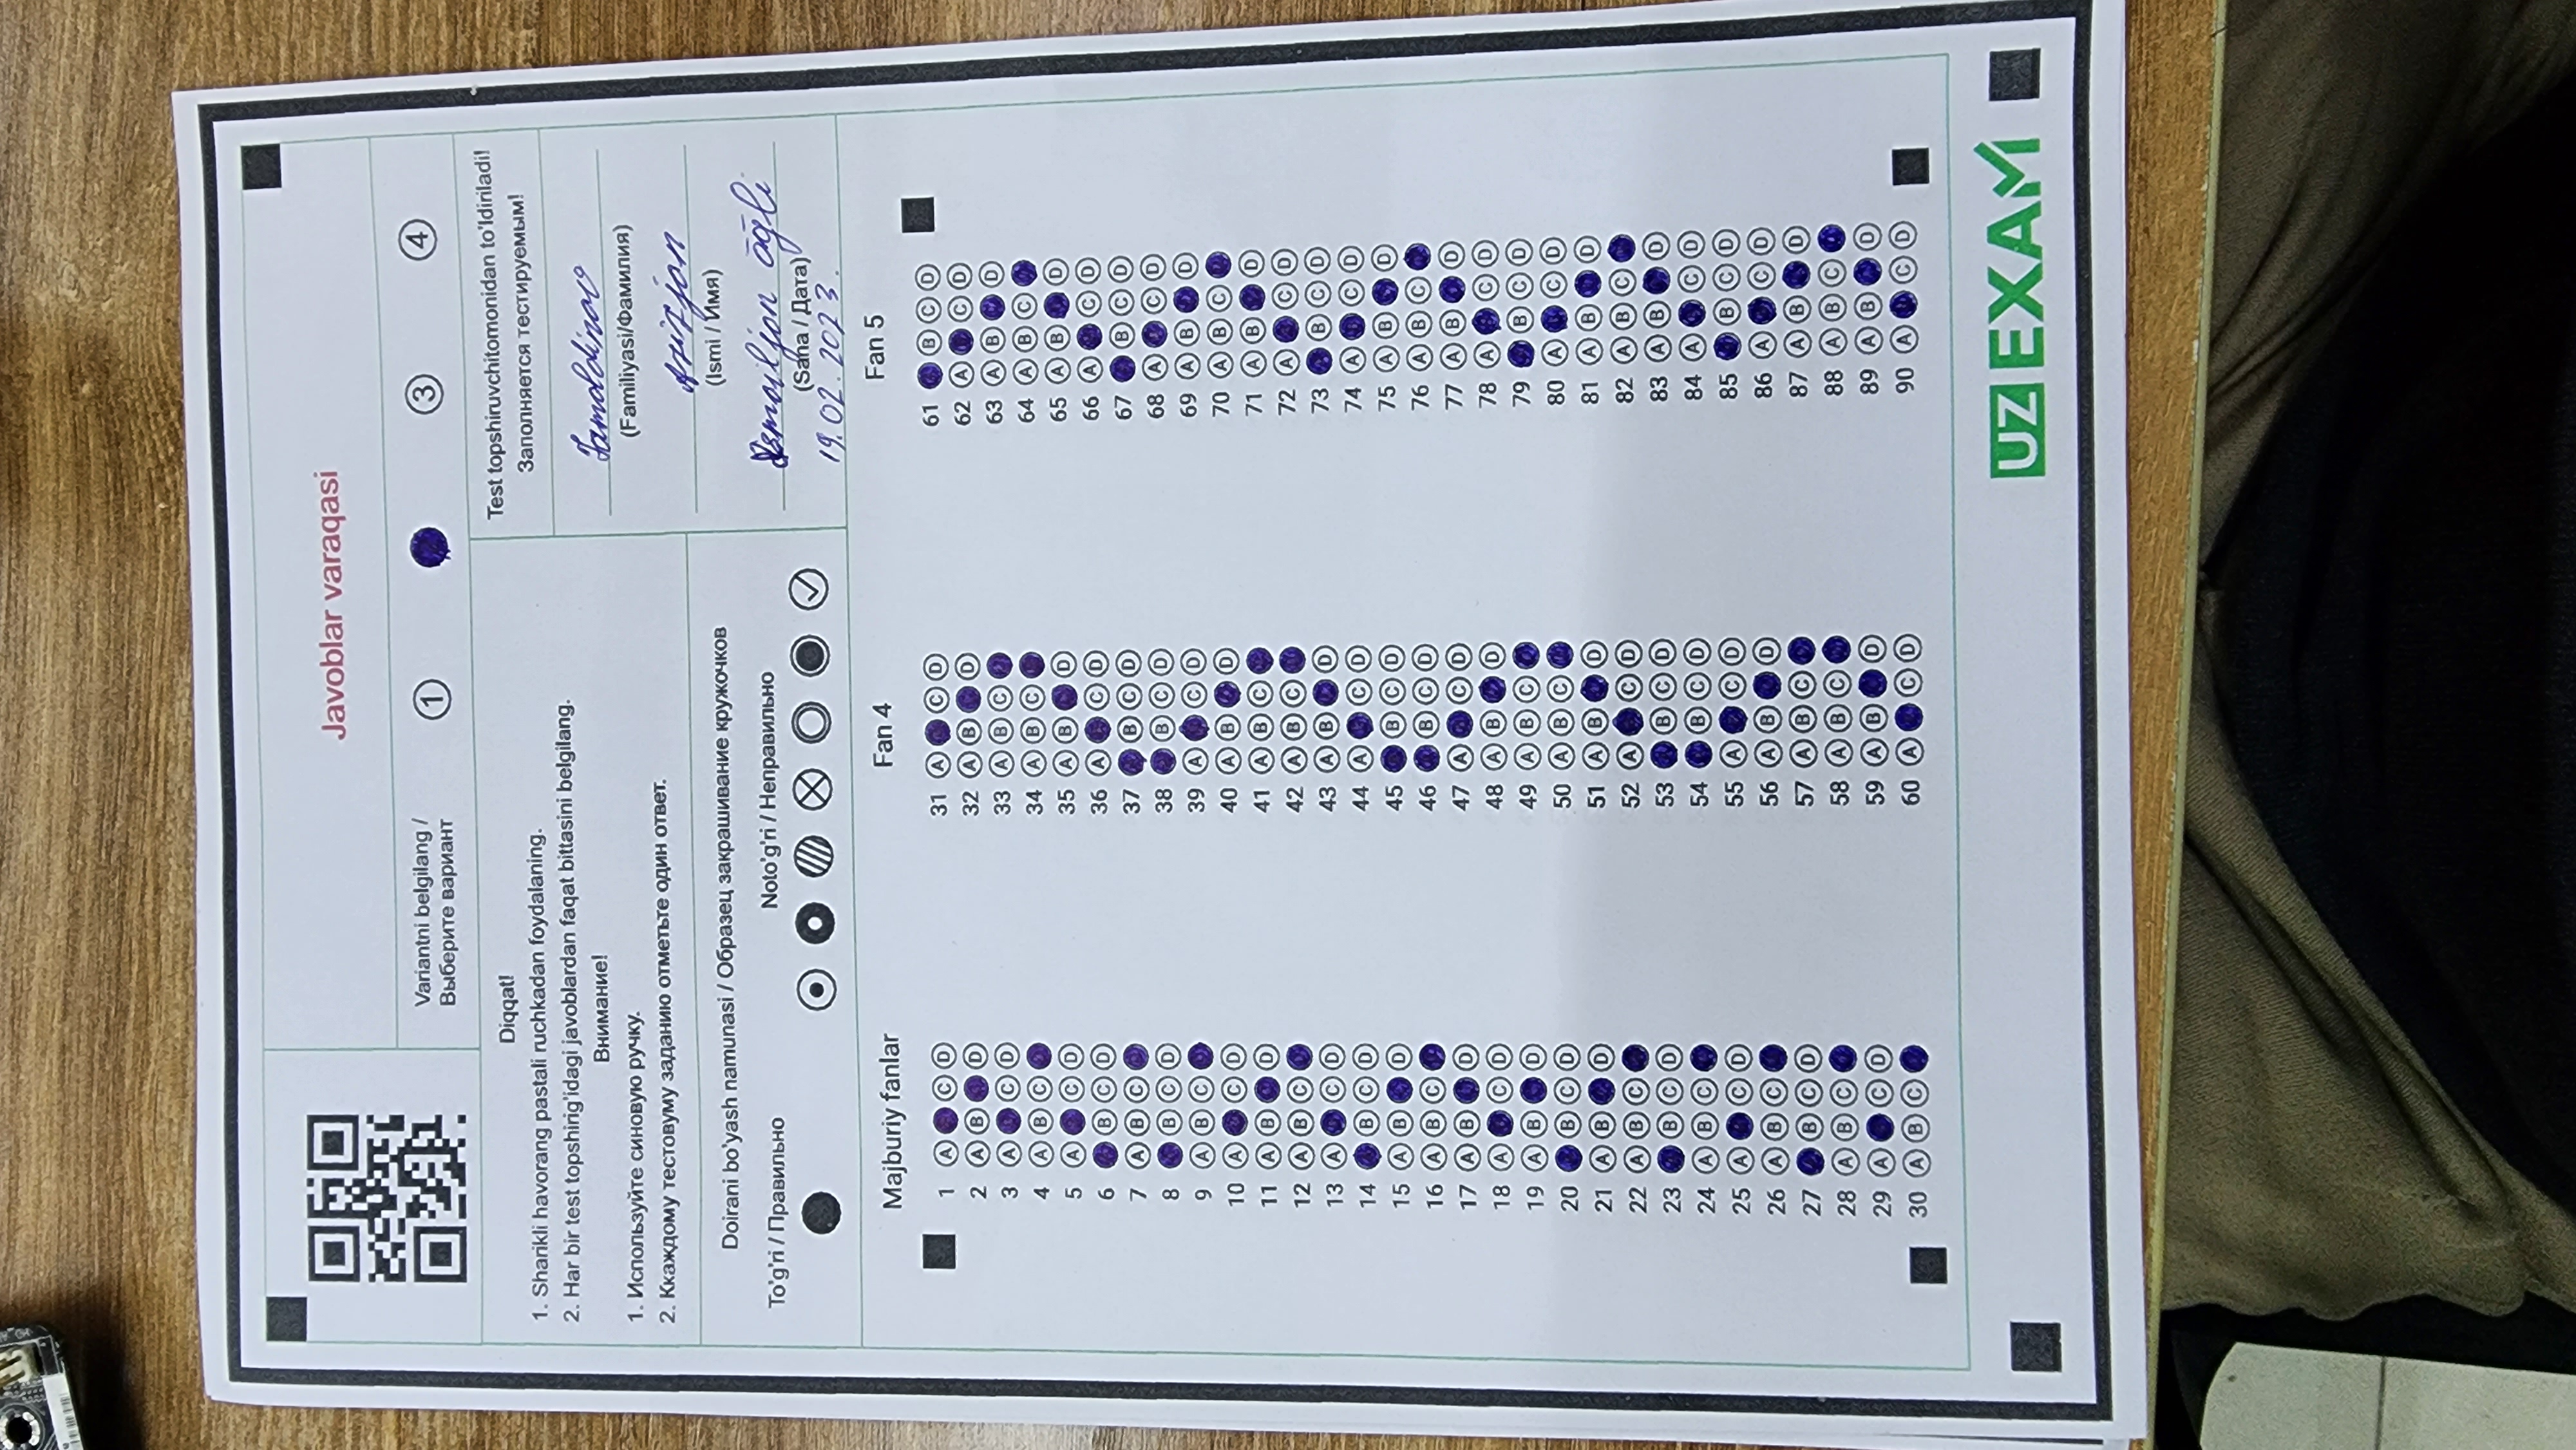 Javoblar varaqasi
Variantni belgilang /
Выберите вариант
1 3 4
Diqqat!
1. Sharikli havorang pastali ruchkadan foydalaning.
2. Har bir test topshirig'idagi javoblardan faqat bittasini belgilang.
Внимание!
1. Используйте синовую ручку.
2. Ккаждому тестовуму заданию отметьте один ответ.
Test topshiruvchitomonidan to'ldiriladi!
Заполняется тестируемым!
Jamoldinov
(Familiyasi/Фамилия)
Azizjon
(Ismi / Имя)
Ismoiljon õğli
(Sana / Дата)
19.02.2023.
Doirani bo'yash namunasi / Образец закрашивание кружочков
To'g'ri / Правильно
Noto'g'ri / Неправильно
Majburiy fanlar
1 A C D
2 A B D
3 A C D
4 A B C
5 A C D
6 B C D
7 A B C
8 B C D
9 A B C
10 A C D
11 A B D
12 A B C
13 A C D
14 B C D
15 A B D
16 A B C
17 A B D
18 A C D
19 A B D
20 B C D
21 A B D
22 A B C
23 B C D
24 A B C
25 A C D
26 A B C
27 B C D
28 A B C
29 A C D
30 A B C
Fan 4
31 A C D
32 A B D
33 A B C
34 A B C
35 A B D
36 A C D
37 B C D
38 B C D
39 A C D
40 A B D
41 A B C
42 A B C
43 A B D
44 A C D
45 B C D
46 B C D
47 A C D
48 A B D
49 A B C
50 A B C
51 A B D
52 A C D
53 B C D
54 B C D
55 A C D
56 A B D
57 A B C
58 A B C
59 A B D
60 A C D
Fan 5
61 B C D
62 A C D
63 A B D
64 A B C
65 A B D
66 A C D
67 B C D
68 A C D
69 A B D
70 A B C
71 A B D
72 A C D
73 B C D
74 A C D
75 A B D
76 A B C
77 A B D
78 A C D
79 B C D
80 A C D
81 A B D
82 A B C
83 A B D
84 A C D
85 B C D
86 A C D
87 A B D
88 A B C
89 A B D
90 A C D
UZEXAM